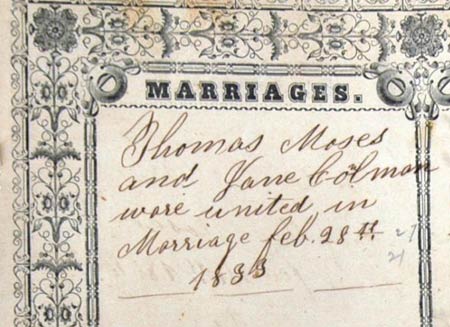 MARRIAGES.
Thomas Moses
and Jane Colman
ware united in
Marriage feb. 28th
1833